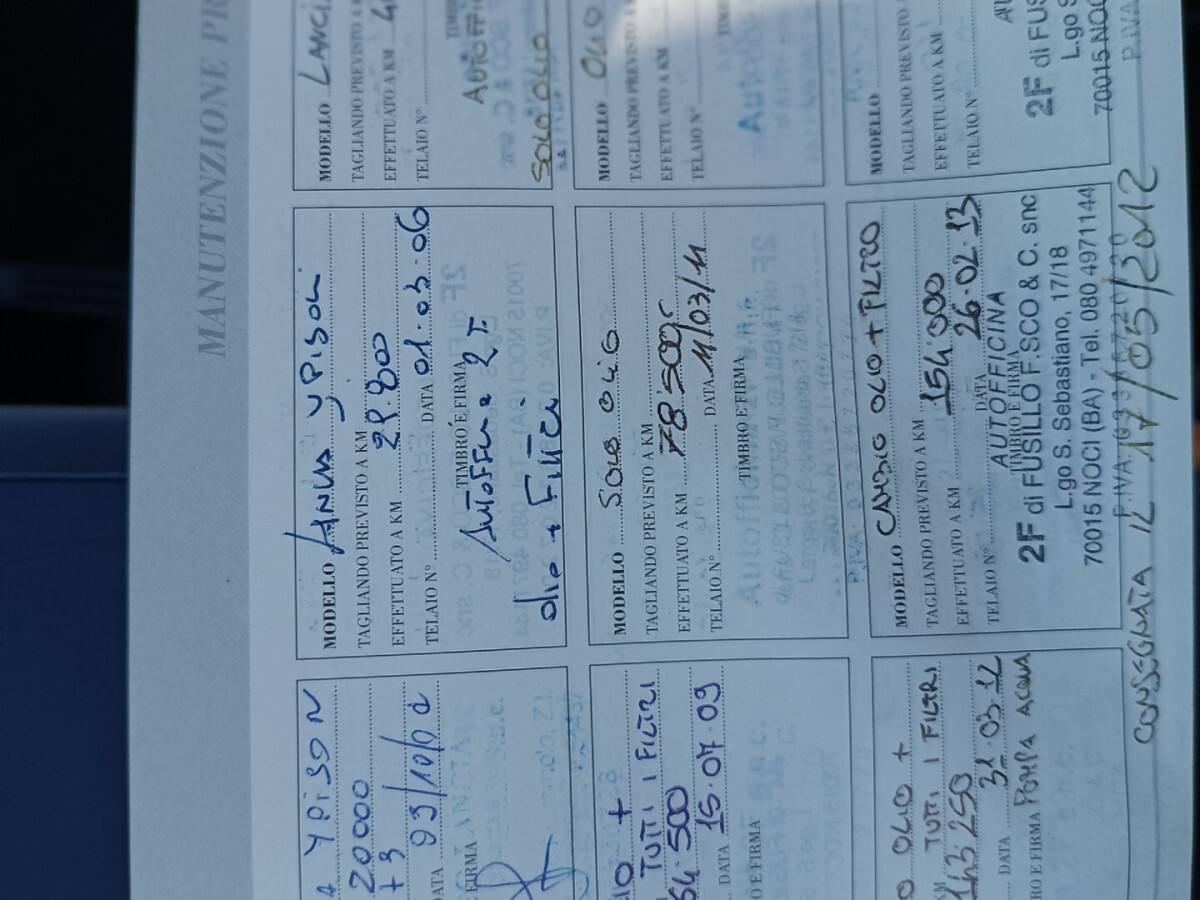 MANUTENZIONE PR
YPISON
20000
+ 3
DATA
FIRMA
MODELLO
TAGLIANDO PREVISTO A KM
EFFETTUATO A KM 29.800
TELAIO N° DATA 01.03.06
TIMBRO E FIRMA
2F
olio + Filtri
MODELLO LANCI
TAGLIANDO PREVISTO A KM
EFFETTUATO A KM
TELAIO N°
SOLO OLIO
+
TUTTI I FILTRI
64.500
DATA 15.07.09
O E FIRMA
MODELLO SOLO OLIO
TAGLIANDO PREVISTO A KM
EFFETTUATO A KM 78500
TELAIO N° DATA 11/03/11
TIMBRO E FIRMA
MODELLO OLIO
TAGLIANDO PREVISTO A KM
EFFETTUATO A KM
TELAIO N°
O OLIO +
KM TUTTI I FILTRI
143250
DATA 31.03.12
RO E FIRMA POMPA ACQUA
MODELLO CAMBIO OLIO + FILTRO
TAGLIANDO PREVISTO A KM
EFFETTUATO A KM 154000
TELAIO N° DATA 26.02.13
AUTOFFICINA
TIMBRO E FIRMA
2F di FUSILLO F.SCO & C. snc
L.go S. Sebastiano, 17/18
70015 NOCI (BA) - Tel. 080 4971144
P.IVA
MODELLO
TAGLIANDO PREVISTO A KM
EFFETTUATO A KM
TELAIO N°
2F di FUS
L.go S
70015 NOC
P.IVA
CONSEGNATA IL 17/05/2012